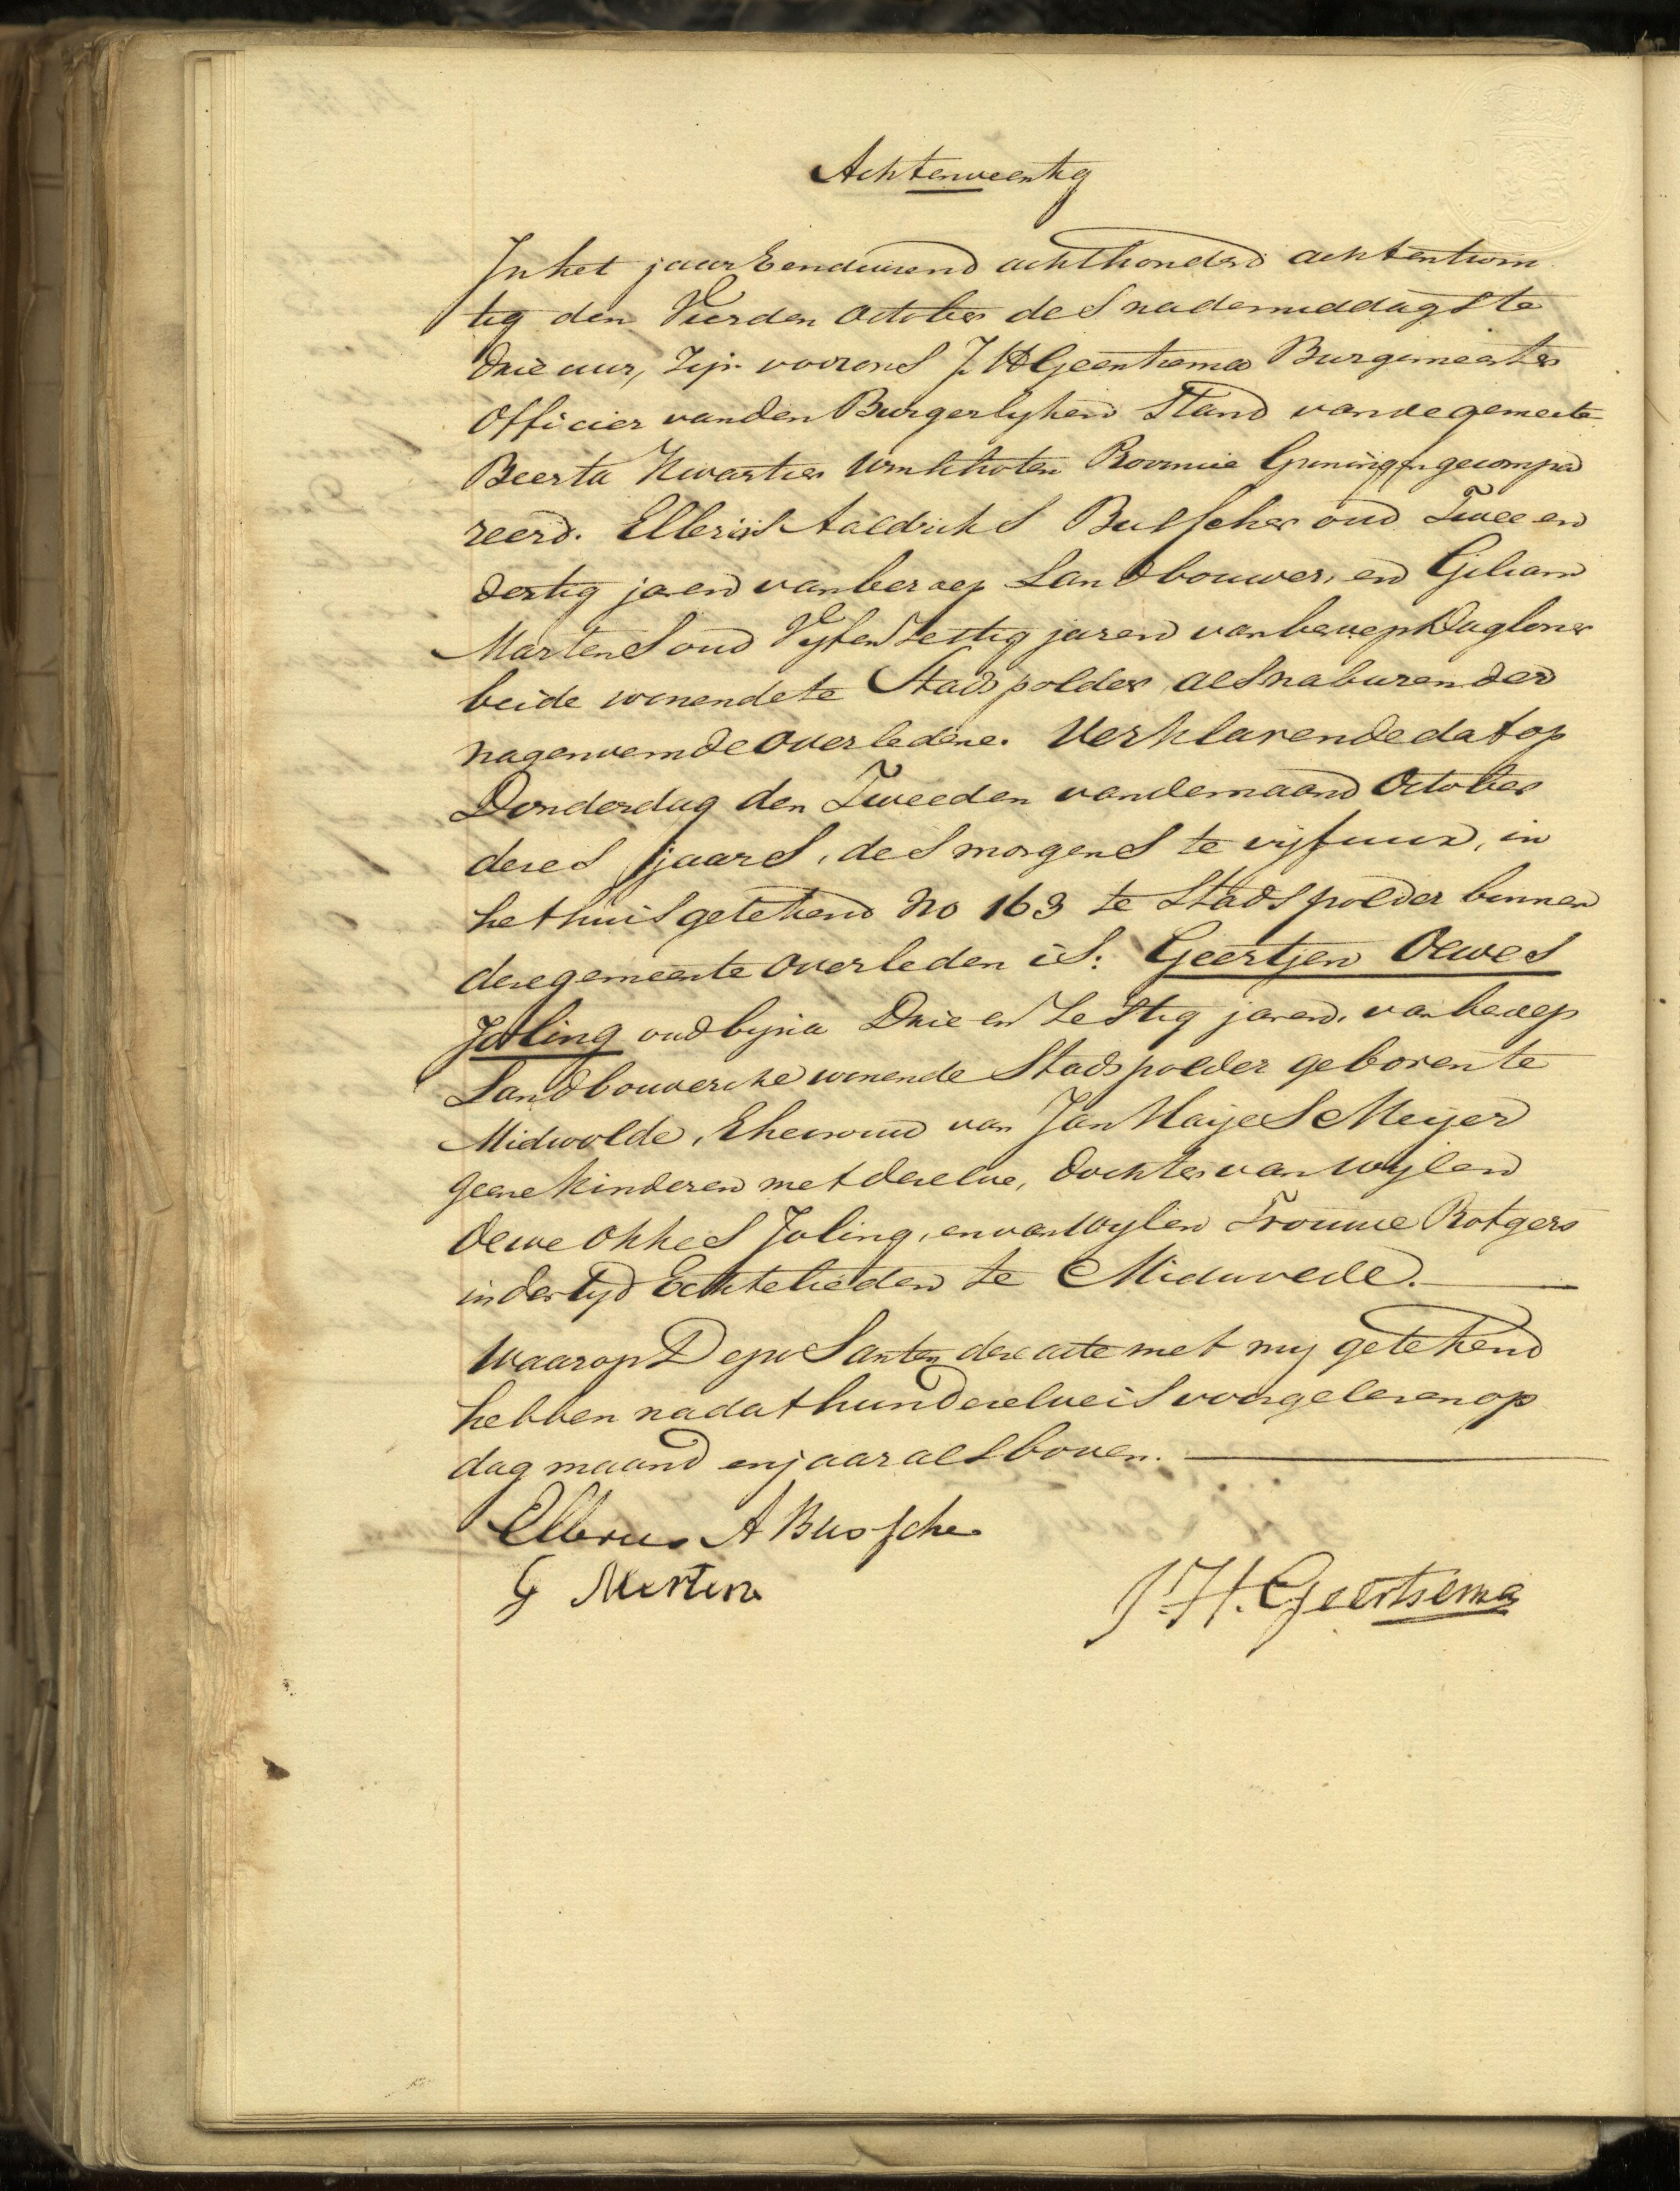 Achtenveertig
In het jaar Eenduizend achthonderd achtentwin
tig den Vierden October des nademiddags te
drie uur, Zijn voor ons J. H Geertsema Burgemeester
Officier van den Burgerlyken Stand van de gemeente
Beerta Kwartier Winschoten Provincie Groningen gecompa
reerd. Ellerus Aaldriks Busscher oud Twee en
dertig jaren van beroep Landbouwer, en Giliam
Martens oud Vyf en Zestig jaren van beroep Dagloner
beide wonende te Stads polder als naburen der
nagenoemde Overledene. Verklarende dat op
Donderdag den Tweeden van de maand October
dezes jaars, des morgens te vijf uur, in
het huis getekend No 163 te Stads polder binnen
deze gemeente Overleden is: Geertjen Oewes
Joling oud byna Drie en Zestig jaren, van beroep
Landbouwersche wonende Stads polder geboren te
Midwolde, Ehevrouw van Jan Haijes Meijer
geene Kinderen met dezelve, dochter van Wylen
Oewe Okkes Joling, en van Wylen Trouwe Rotgers
in der tyd Echtelieden te Midwolde.
Waarop Deposanten deze acte met my getekend
hebben na dat hun dezelve is voorgelezen op
dag maand en jaar als boven.
Ellerus A Busscher
G Mertens
J. H. Geertsema